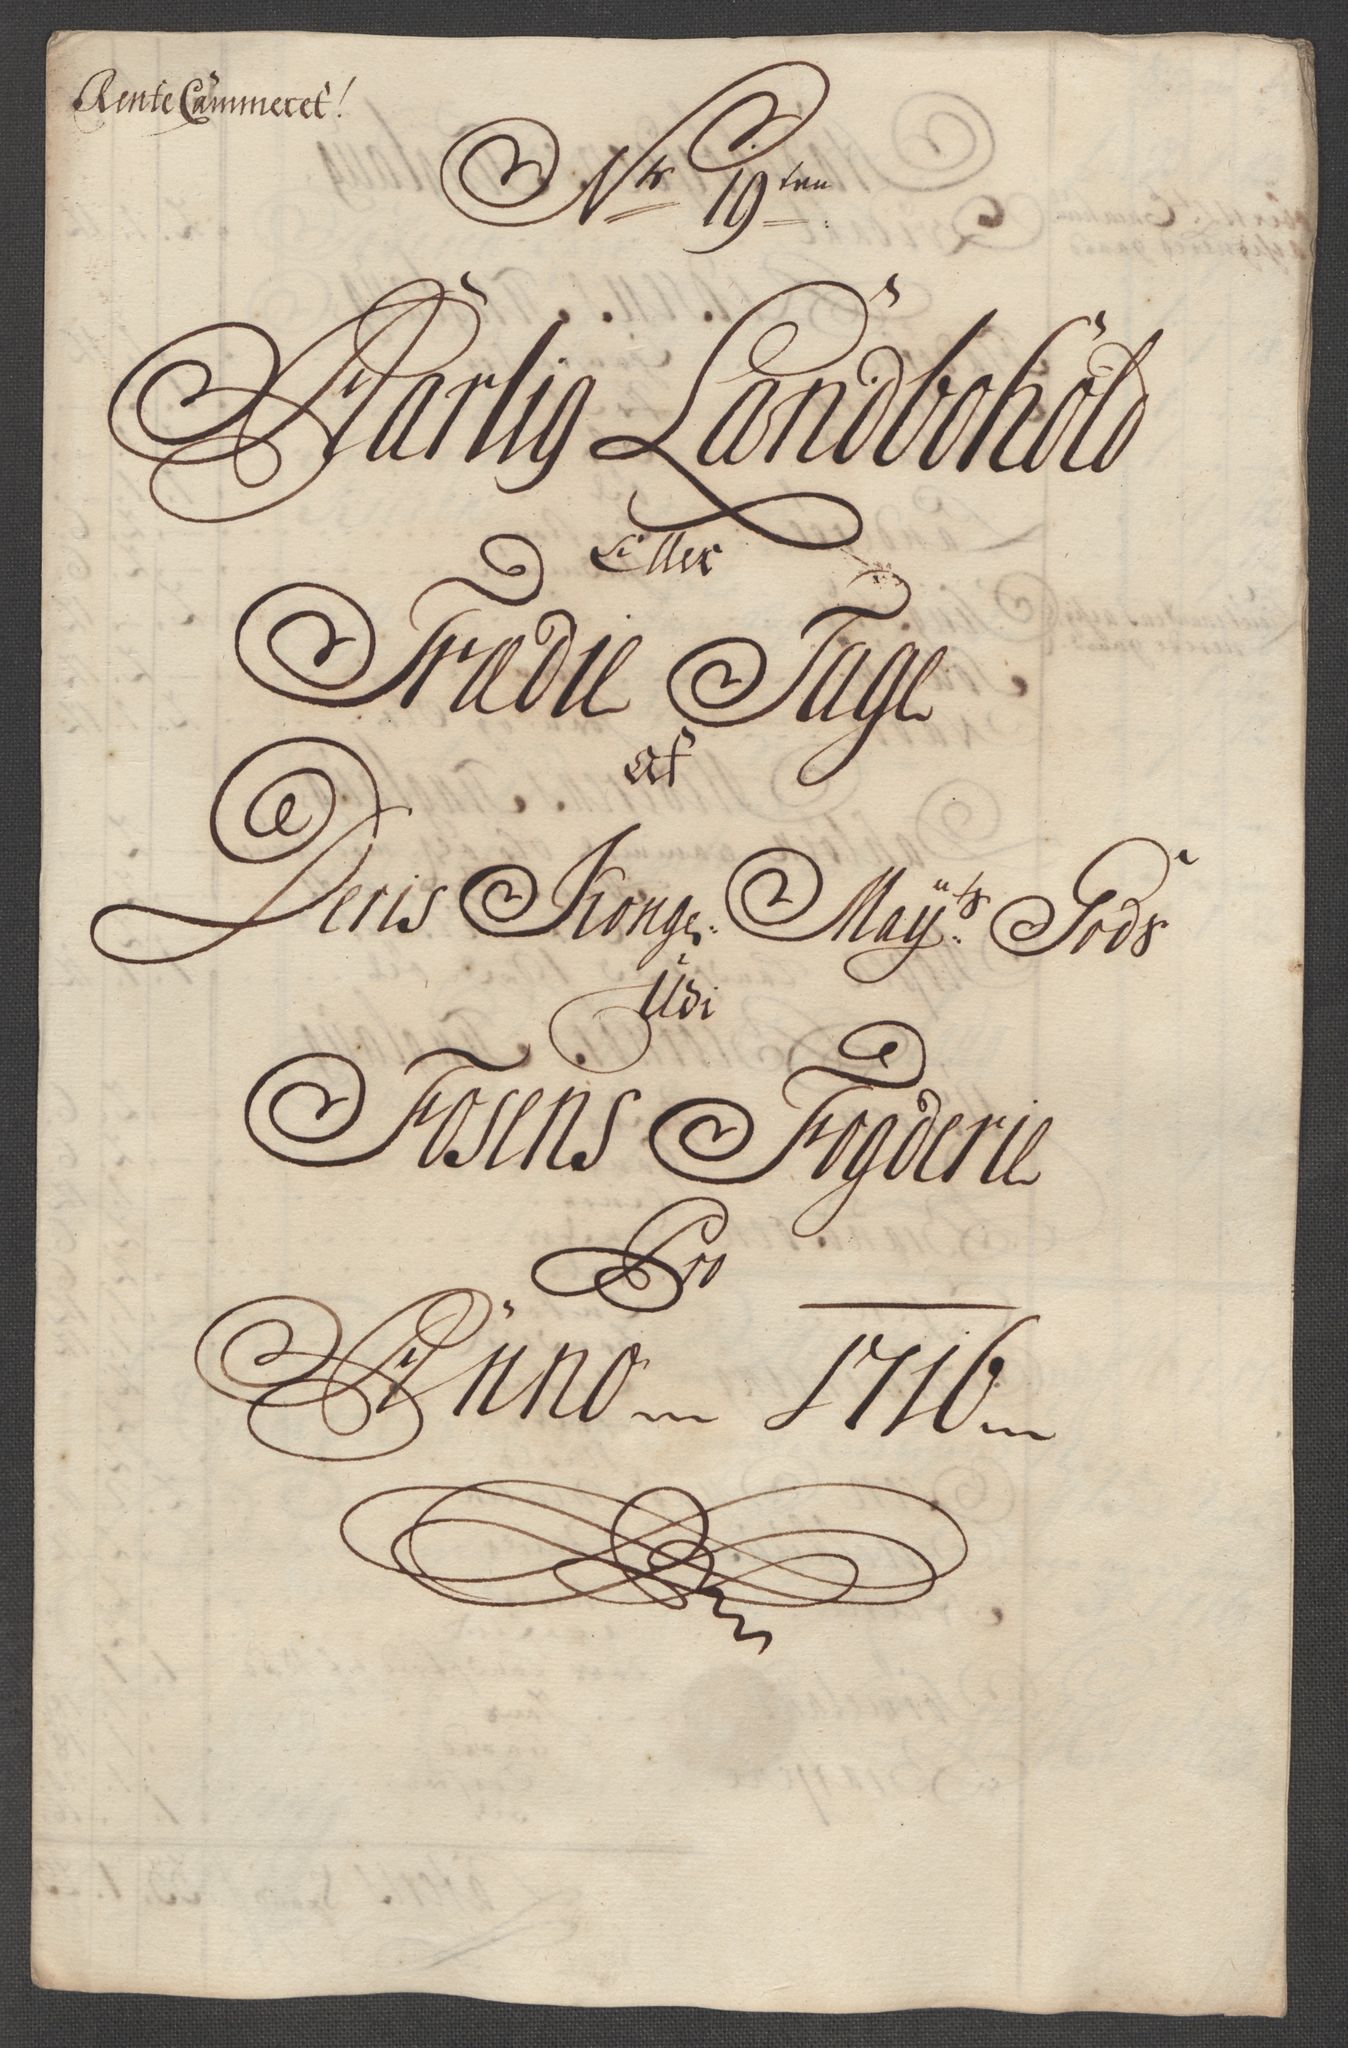 Rente Cammeret!
Nr 19ten
Aarlig Landbohold
Eller
Trædie Tage
af
Deris Konge. Mayts. Gods
Udi
Fosens Fogderie
Pro
Anno 1716